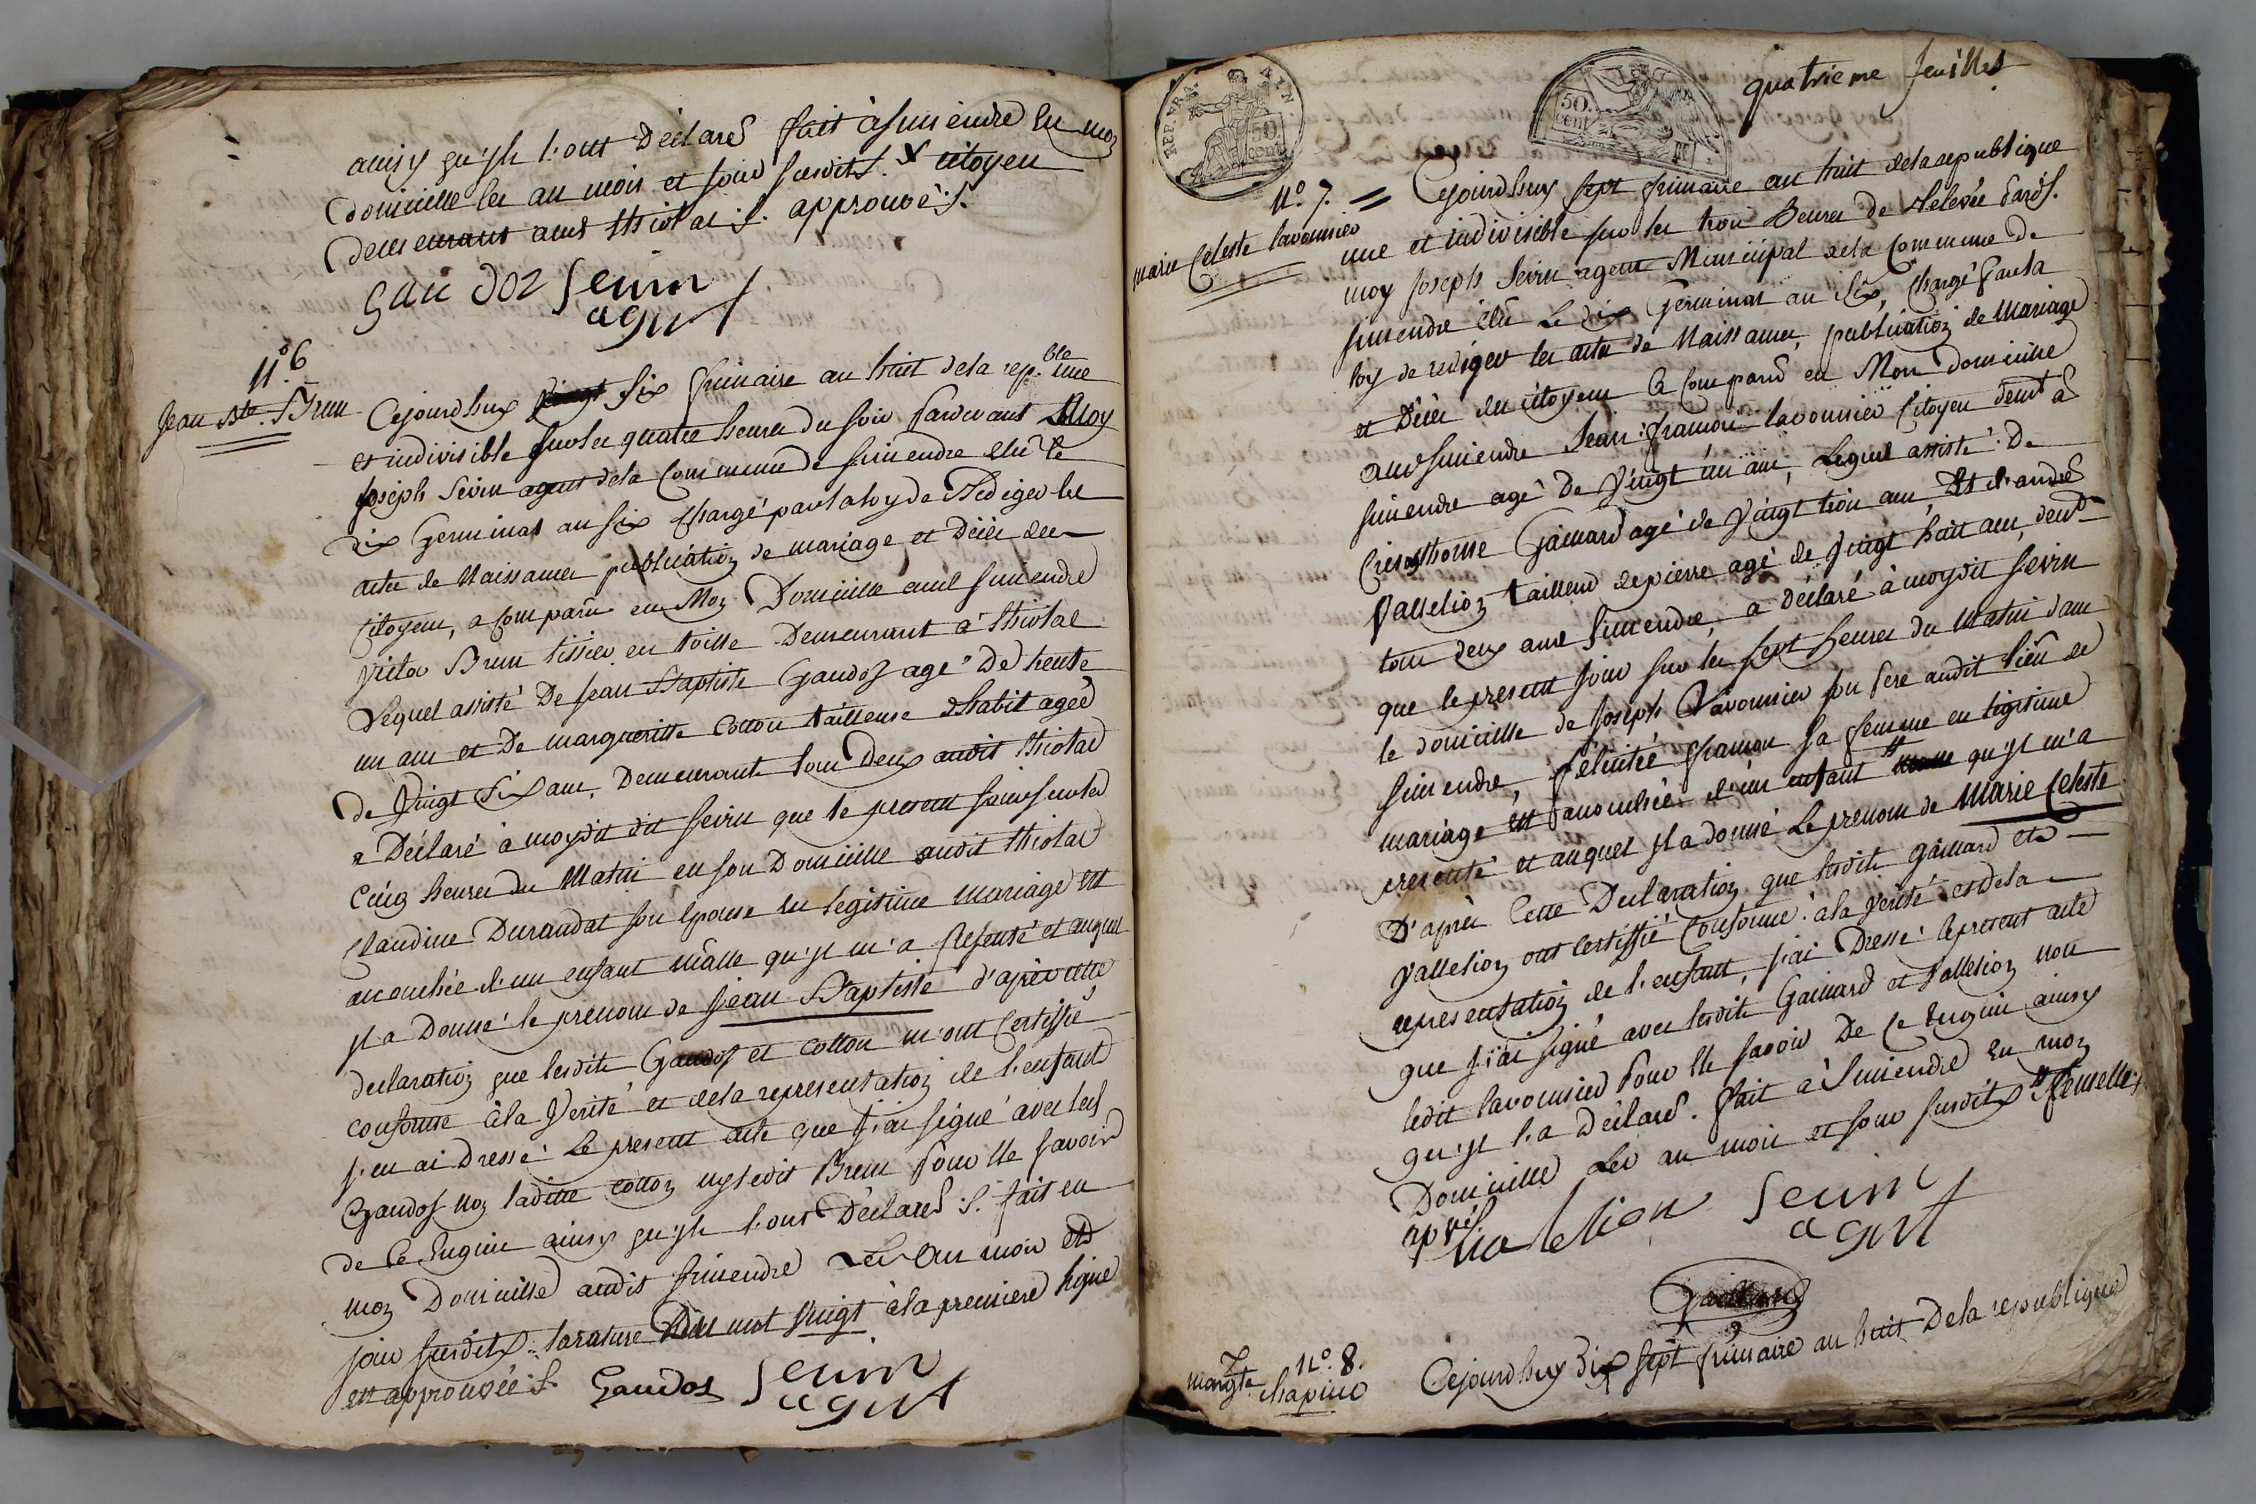 ainsy qu'ils l'ont Déclaré fait à simendre En mon
domicille les an mois et jour susdits. X citoyen
demeurant audt thiolat :/. approuvé :/.
Gaudoz Sevin
agent
N° 6
Jean Bte. Brun
Cejourdhuy vingt six frimaire an huit de la rep.ble une
et indivisible sur les quatre heures du soir Pardevant Moy
Joseph Sevin agent de la Commune de simendre elu le
dix Germinal an six Chargé par la loy de Rediger les
actes de Naissances publication de mariage et Décès des
Citoyens, a Comparu en Mon Domicille audt simendre
Victor Brun tissier en toille Demeurant à thiolat
Lequel assisté De Jean Baptiste Gaudoz agé De trente
un ans et De margueritte Cotton tailleuse d'habit agée
de Vingt Six ans, Demeurants tous Deux audit thiolat
a Déclaré à moydit dit Sevin que le present jour sur les
Cinq heures du Matin en son Domicille audit thiolat
Claudine Durandat son Epouse en legitime mariage est
accouchée d'un enfant mâlle qu'il m'a Presenté et auquel
il a Donné le prenom de Jean Baptiste d'après cette
declaration que lesdits Gaudoz et Cotton m'ont Certiffié
conforme à la Verité et de la representation de l'enfant
j'en ai Dressé Le present acte que j'ai signé avec led
Gaudoz non laditte cotton ny ledit Brun Pour Ne savoir
de Ce Enquis ainsy qu'ils l'ont Déclaré :/. fait en
mon Domicille audit simendre Les an mois et
jour susdits. la rature Du mot vingt à la premiere ligne
est approuvée :/.
Gaudoz Sevin
agent
quatrieme feuillet
REP. FRA.
50.
cent
50.
cent
N° 7.
marie Celeste lavoursier
Cejourdhuy sept frimaire an huit de la republique
une et indivisible sur les trois Heures de Relevée Pards.
moy Joseph Sevin agent Municipal de la Commune de
simendre élu Le dix Germinal an six, Chargé Par la
loy de rediger les actes de Naissances, publication de Mariage
et Décès des citoyens a Comparu en Mon domicille
audt simendre Jean françois lavoursier Citoyen demt à
simendre agé De Vingt un ans, Lequel assisté De
Gaillard agé de Vingt trois ans, Et d'andré
Vallelion tailleur de pierre agé de vingt huit ans, demt
tous deux audt Simendre, a Déclaré à moydit Sevin
que le present jour sur les sept heures du Matin dans
le domicille de Joseph Lavoursier son Pere audit lieu de
Simendre, félicité son sa femme en legitime
mariage est accouchée d'un enfant qu'il m'a
presenté et auquel il a donné Le prenom de Marie Celeste
D'après Cette Declaration que lesdits Gaillard et
Vallelion ont certiffié Conforme à la verité et de la
representation de l'enfant, j'ai Dressé le present acte
que j'ai signé avec lesdits Gaillard et Vallelion non
ledit lavoursier Pour Ne savoir De Ce Enquis ainsy
qu'il l'a Déclaré. fait à Simendre En mon
Domicille Les an mois et jour susdits femelle
apvé.
Valelion Sevin
agent
Gaillard
N° 8.
margte. Chapino
Cejourdhuy dix sept frimaire an huit De la republique